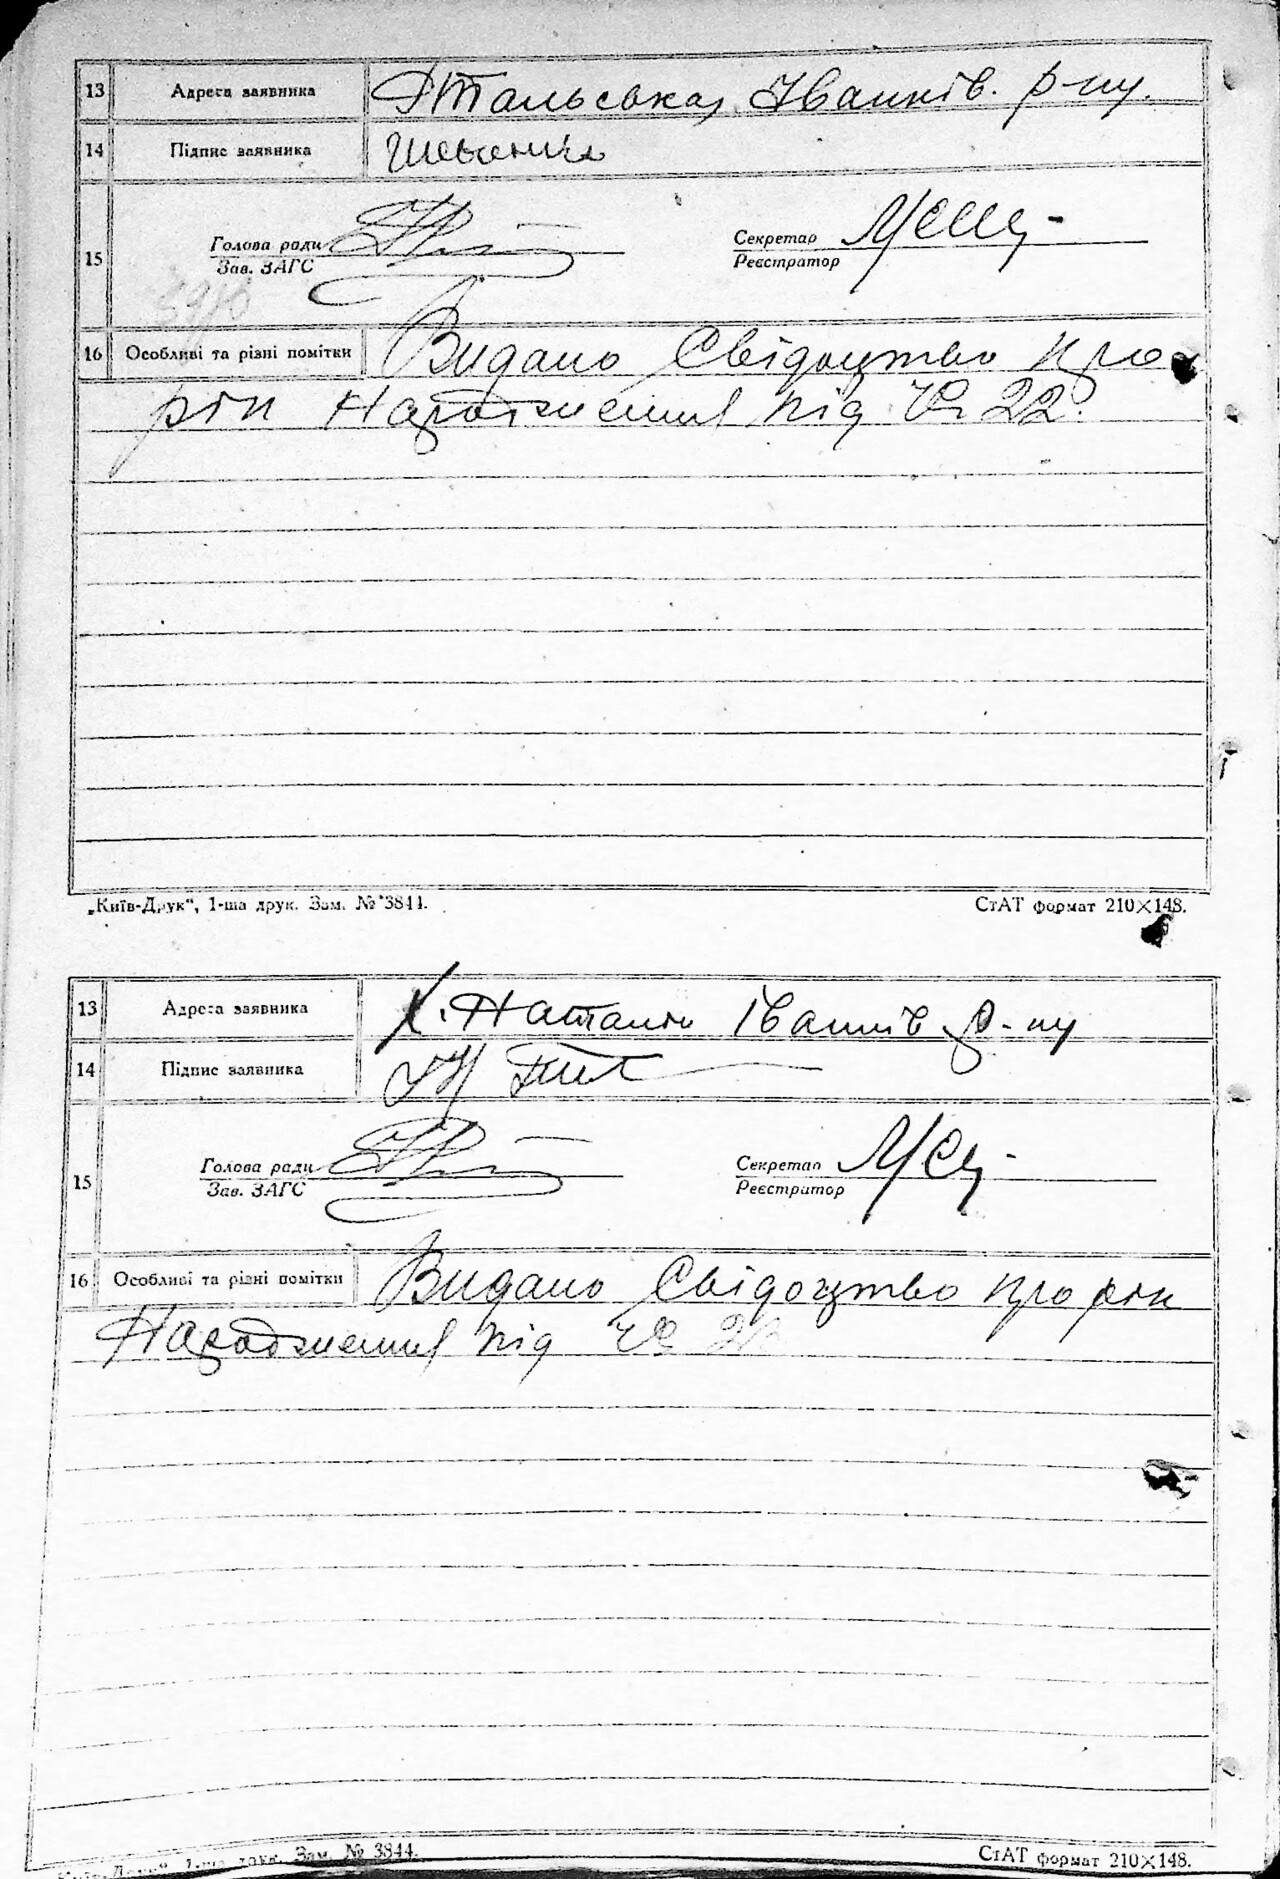 13 Адреса заявника Тальська, Іванків. р-ну.
14 Підпис заявника
Голова ради Секретар
15 Зав. ЗАГС Реєстратор
16 Особливі та різні помітки Видано Свідоцтво про
рік Народження під Ч. 22.
„Київ-Друк“, 1-ша друк. Зам. № 3844. СтАТ формат 210×148.
13 Адреса заявника Х. Наталін Іванків р-ну
14 Підпис заявника
Голова ради Секретар
15 Зав. ЗАГС Реєстратор
16 Особливі та різні помітки Видано Свідоцтво про рік
Народження під Ч.
1-ша друк. Зам. № 3844. СтАТ формат 210×148.